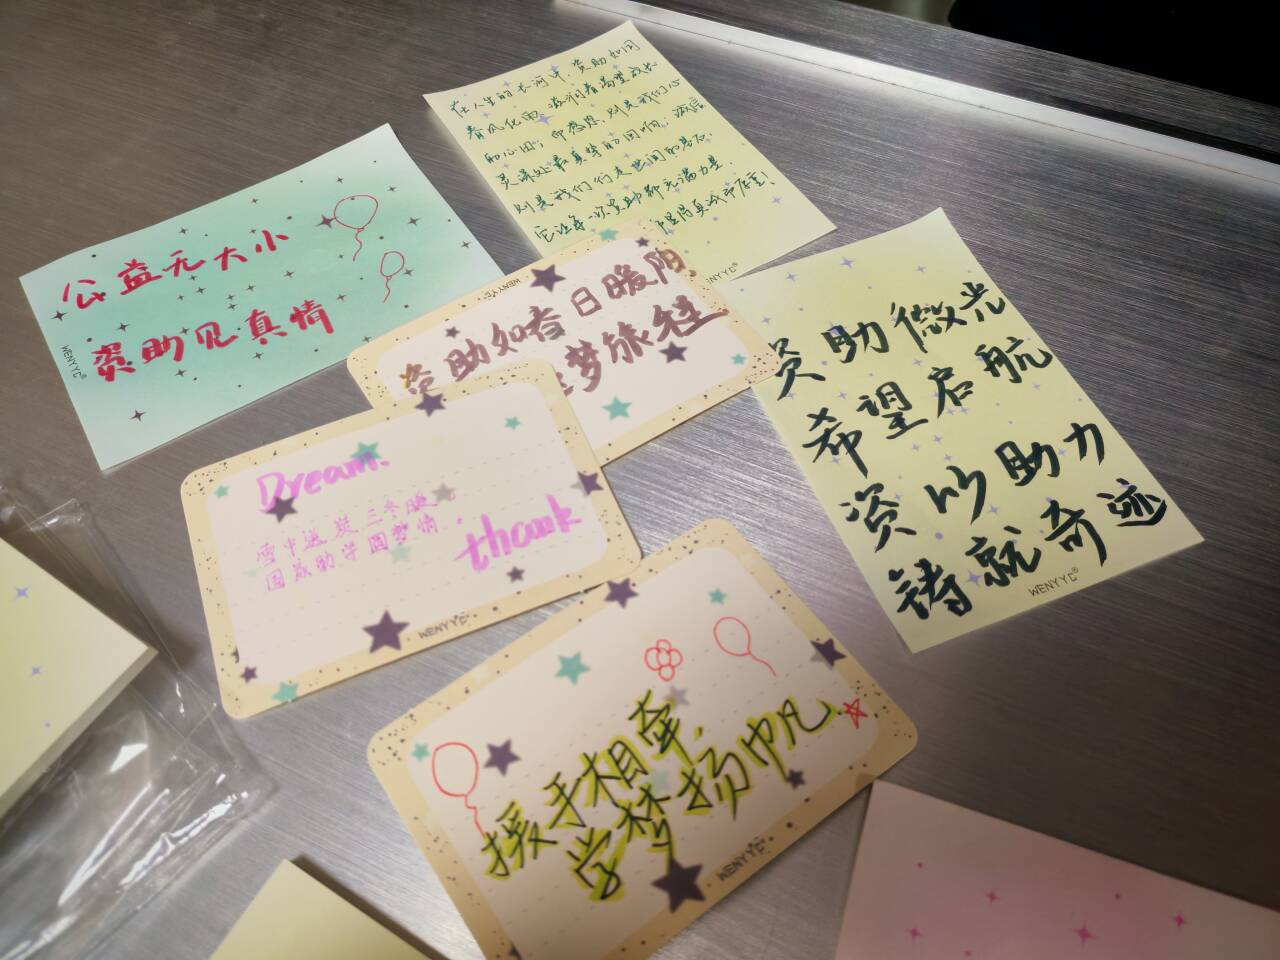 在人生的长河中，资助如同
春风化雨，滋润着渴望成长
的心田；而感恩，则是我们心
灵深处最真挚的回响；诚信
则是我们行走世间的基石，
它让每一次资助都充满力量，
公益无大小
资助见真情
WENYYC®
资助如春日暖阳
梦旅程
WENYYC
WENYYC®
资助微光
希望启航
资以助力
铸就奇迹
WENYYC®
Dream.
雪中送炭三冬暖
国家助学圆梦情.
thank
WENYYC®
援手相牵,
学梦扬帆.
WENYYC